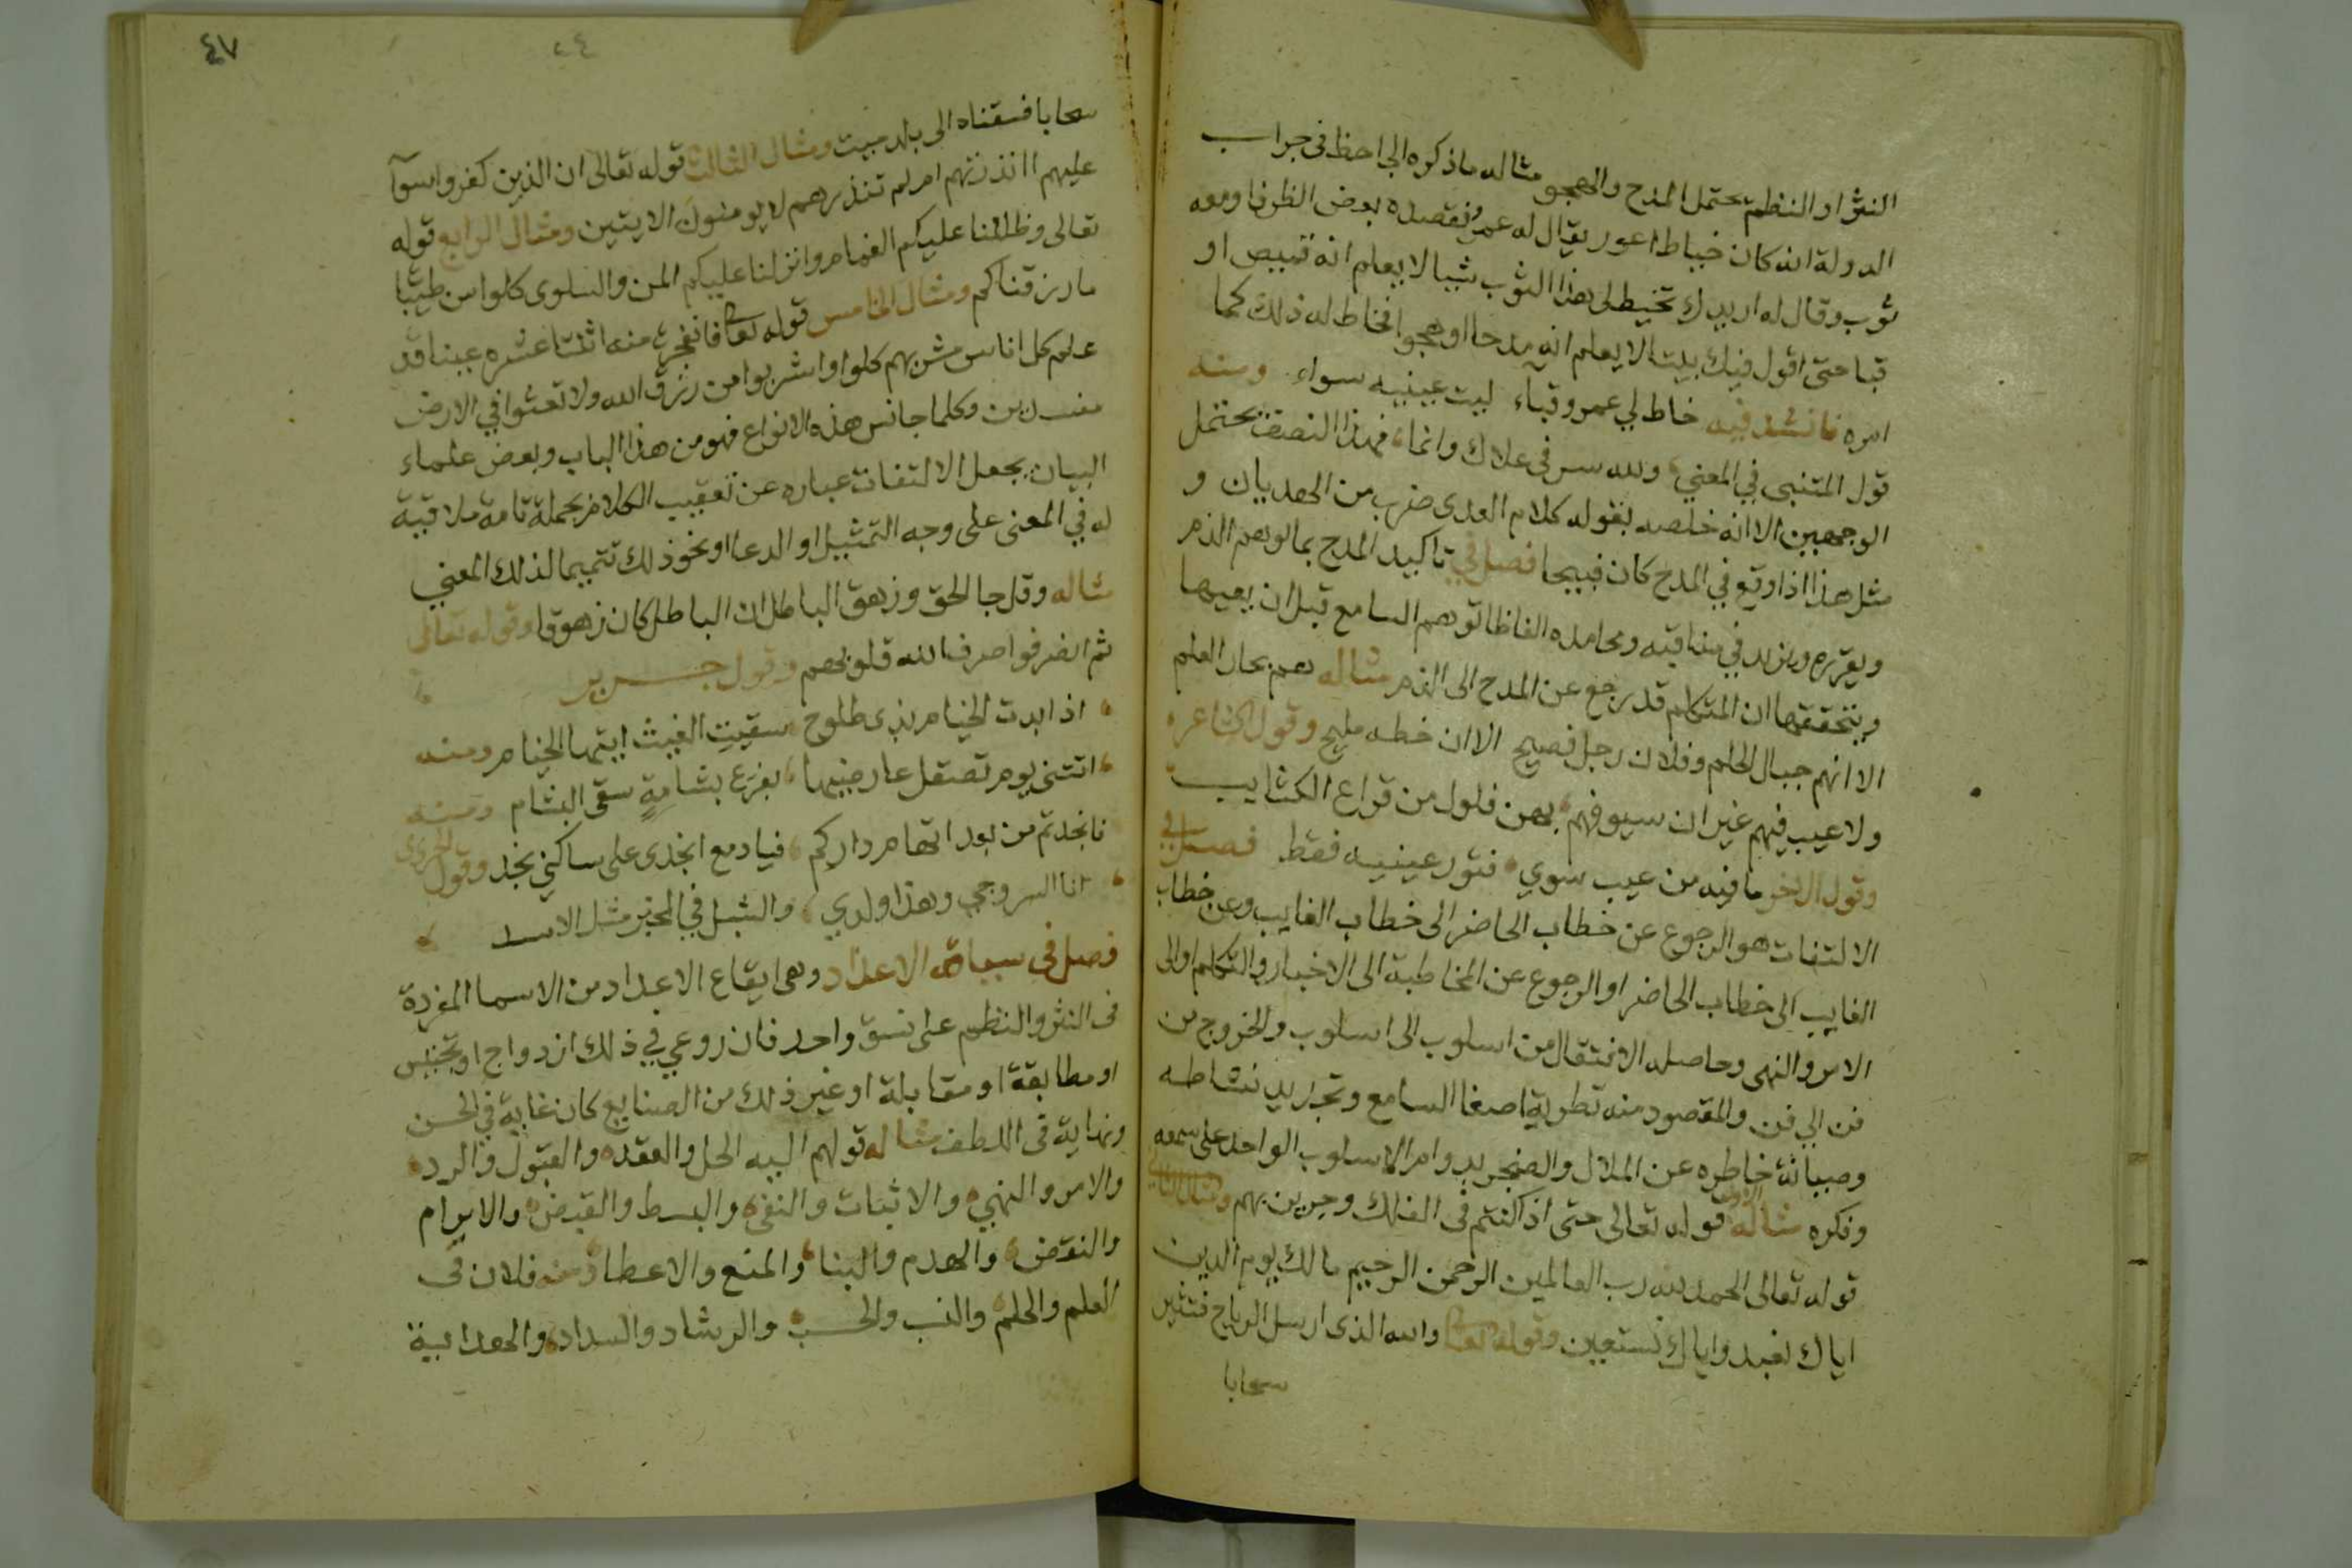 النثر او النظم يحتمل المدح والهجو مثاله ماذكره الجاحظ في جراب
الدولة انه كان خياط اعور يقال له عمرو فقصده بعض الظرفا ومعه
ثوب وقال له اريدك تخيط لي هذا الثوب شيا لا يعلم انه قميص او
قبا حتى اقول فيك بيتا لا يعلم انه مدحا او هجوا فخاط له ذلك كما
امره فانشد فيه خاط لي عمرو قباء ليت عينيه سواء ومنه
قول المتنبي في المعني ولله سر في علاك وانما فهذا النصف يحتمل
الوجهين الا انه خلصه بقوله كلام العدى ضرب من الهذيان و
مثل هذا اذا وقع في المدح كان قبيحا فصل في تاكيد المدح بما يوهم الذم
ويقرره ويزيد في مناقبه ومحامده الفاظا توهم السامع قبل ان يعيها
ويتحققها ان المتكلم قد رجع عن المدح الى الذم مثاله هم بحار العلم
الا انهم جبال الحلم وفلان رجل فصيح الا ان خطه مليح وقول الشاعر
ولا عيب فيهم غير ان سيوفهم بهن فلول من قراع الكتايب
وقول الاخر ما فيه من عيب سوي فتور عينيه فقط فصل في
الالتفات هو الرجوع عن خطاب الحاضر الى خطاب الغايب وعن خطاب
الغايب الى خطاب الحاضر او الرجوع عن المخاطبة الى الاخبار والتكلم او الى
الامر والنهى وحاصله الانتقال من اسلوب الى اسلوب والخروج من
فن الي فن والمقصود منه تطرية اصغا السامع وتجديد نشاطه
وصيانة خاطره عن الملال والضجر بدوام الاسلوب الواحد على سمعه
وفكره مثال الاول قوله تعالى حتى اذا كنتم فى الفلك وجرين بهم ومثال الثاني
قوله تعالى الحمد لله رب العالمين الرحمن الرحيم مالك يوم الدين
اياك نعبد واياك نستعين وقوله تعالى والله الذى ارسل الرياح فتثير
سحابا
٤٧
٢٤
سحابا فسقناه الى بلد ميت ومثال الثالث قوله تعالى ان الذين كفروا سوآ
عليهم اانذرتهم ام لم تنذرهم لا يومنون الايتين ومثال الرابع قوله
تعالى وظللنا عليكم الغمام وانزلنا عليكم المن والسلوى كلوا من طيبا
ما رزقناكم ومثال الخامس قوله تعالى فانفجرت منه اثنتا عشره عينا قد
علم كل اناس مشربهم كلوا واشربوا من رزق الله ولا تعثوا في الارض
مفسدين وكلما جانس هذه الانواع فهو من هذا الباب وبعض علماء
البيان يجعل الالتفات عباره عن تعقيب الكلام بجملة تامة ملاقية
له في المعنى على وجه التمثيل او الدعا او نحو ذلك تتميما لذلك المعني
مثاله وقل جا الحق وزهق الباطل ان الباطل كان زهوقا وقوله تعالى
ثم انصرفوا صرف الله قلوبهم وقول جرير
اذا بدت الخيام بذى طلوح سقيت الغيث ايتها الخيام ومنه
اتنسى يوم تصقل عارضيها بفرع بشامةٍ سقى البشام ومنه
فانجدتم من بعد اتهام داركم فيا دمع انجدى على ساكني نجد وقول الحريرى
انا السروجي وهذا ولدي والشبل في المخبر مثل الاسد
فصل فى سياقة الاعداد وهى ايقاع الاعداد من الاسما المفردة
فى النثر والنظم على نسق واحد فان روعي في ذلك ازدواج او تجنيس
او مطابقة او مقابلة او غير ذلك من الصنايع كان غاية في الحسن
ونهاية فى اللطف مثاله قولهم اليه الحل والعقد والقبول والرد
والامر والنهي والاثبات والنفى والبسط والقبض والابرام
والنقض والهدم والبنا والمنع والاعطا ومنه فلان فى
العلم والحلم والنسب والحسب والرشاد والسداد والهداية